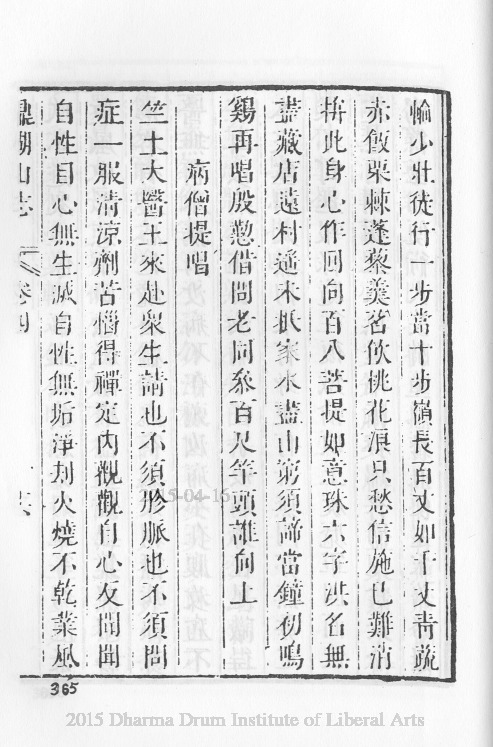 愉少壯徒行一步當十步嶺長百丈如千丈青蔬
赤飯栗棘蓬藜羹茗飲桃花浪只愁信施已難消
拚此身心作回向百八菩提如意珠六字洪名無
盡藏店遠村遙未抵家水盡山窮須諦當鐘初鳴
鷄再唱殷懃借問老同叅百尺竿頭誰向上
病僧提唱
竺土大醫王來赴衆生請也不須胗脈也不須問
症一服清涼劑苦惱得禪定內觀觀自心反聞聞
自性目心無生滅自性無垢淨刦火燒不乾業風
鼎湖山志 卷四 六
365
2015-04-15
2015 Dharma Drum Institute of Liberal Arts